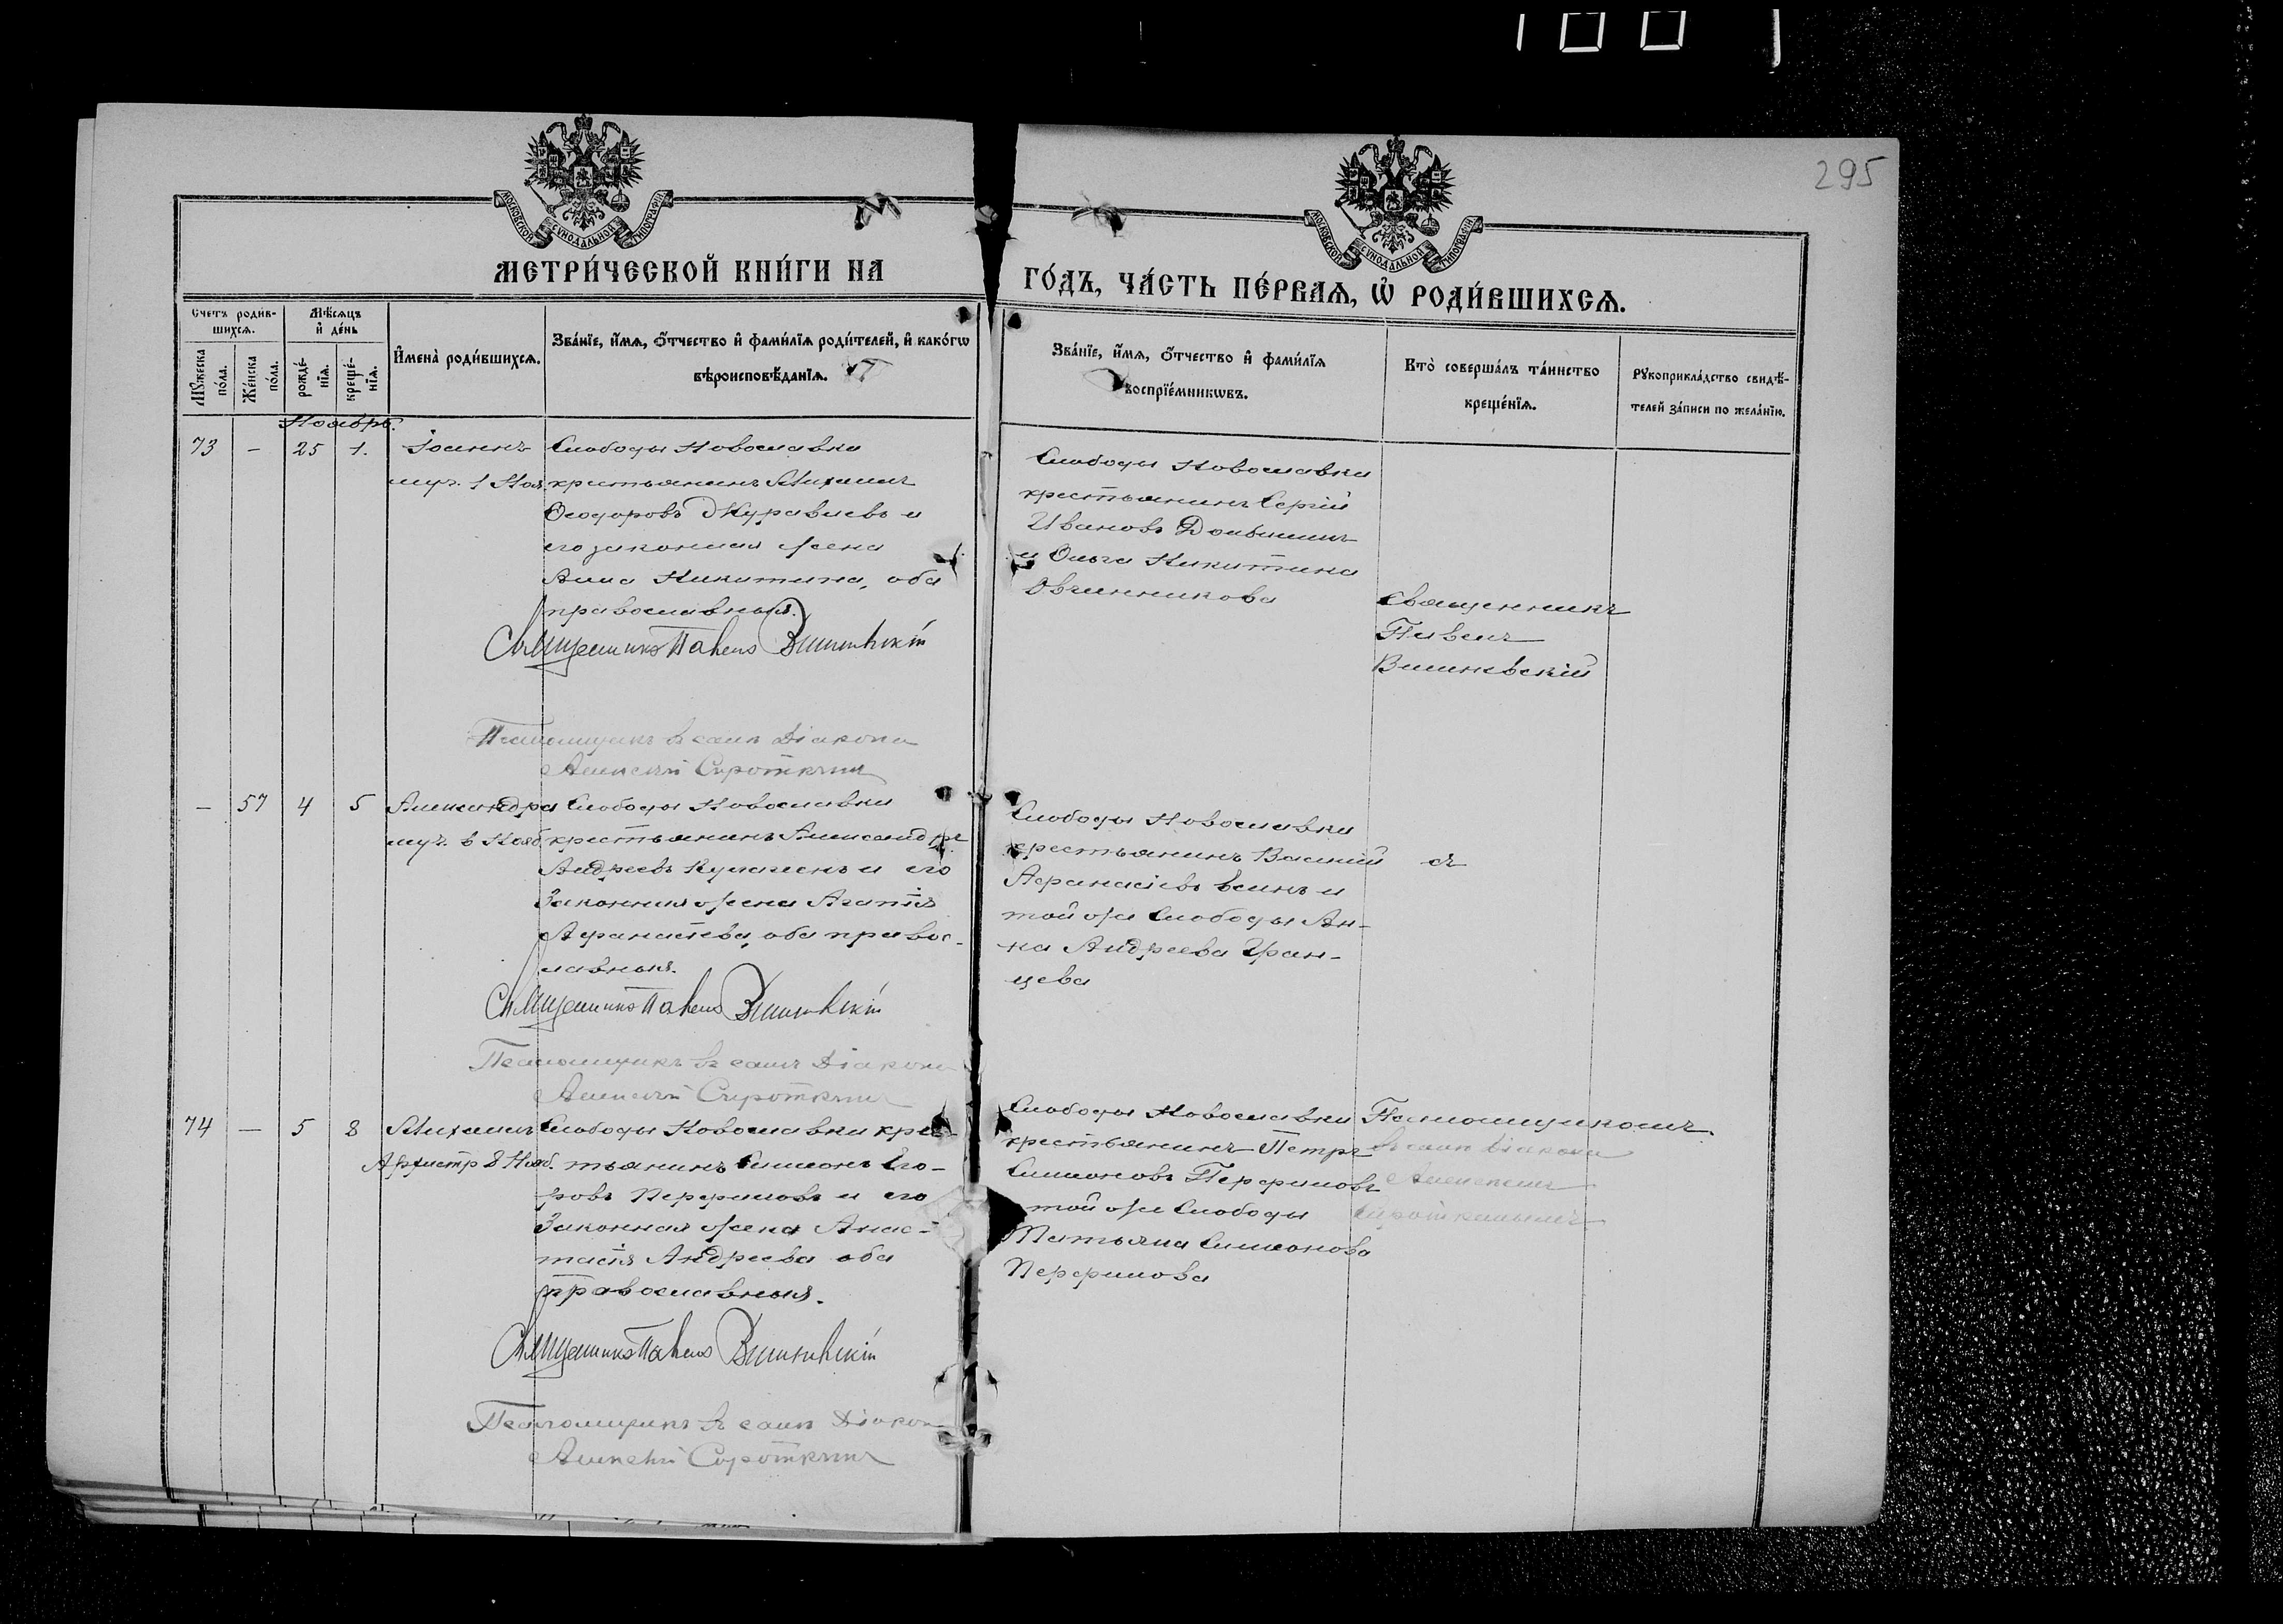 295
МОСКОВСКОЙ СѴНОДАЛЬНОЙ ТИПОГРАФІИ
МОСКОВСКОЙ СѴНОДАЛЬНОЙ ТИПОГРАФІИ
МЕТРИ́ЧЕСКОЙ КНИ́ГИ НА
ГО́ДЪ, ЧА́СТЬ ПЕ́РВАЯ, Ѡ҆ РОДИ́ВШИХСЯ.
Счетъ роди́в-
шихся.
Мѣсяцъ
и҆ де́нь
Мꙋжеска
по́ла.
Же́нска
по́ла.
рожде́-
нїя.
креще́-
нїя.
И҆мена̀ роди́вшихся.
Зва́нїе, и҆́мя, ѻ҆́тчество и҆ фами́лїя роди́телей, и҆ како́гѡ
вѣроисповѣ́данїя.
Зва́нїе, и҆́мя, ѻ҆́тчество и҆ фами́лїя
воспрїе́мникѡвъ.
Кто̀ соверша́лъ та́инство
креще́нїя.
Рꙋкоприкла́дство свидѣ́-
телей за́писи по жела́нїю.
Ноябрь.
73 - 25 1. Іоаннъ
муч. 1 Ноя.
Слободы Новославки
крестьянинъ Михаилъ
Ѳеодоровъ Журавлевъ и
его законная жена
Анна Никитина, оба
православныя.
Священникъ Павелъ Вишневскій
Псаломщикъ въ санѣ Діакона
Алексѣй Сироткинъ
Слободы Новославки
крестьянинъ Сергій
Ивановъ
и Ольга Никитина
Овчинникова
Священникъ
Павелъ
Вишневскій
- 57 4 5 Александра
муч. 6 Нояб.
Слободы Новославки
крестьянинъ Александръ
Андреевъ и его
Законная жена Агапія
Афанасіева, оба правос-
лавныя.
Священникъ Павелъ Вишневскій
Псаломщикъ въ санѣ Діакона
Алексѣй Сироткинъ
Слободы Новославки
крестьянинъ Василій
Афанасіевъ и
той же Слободы Ан-
на Андреева
цева
74 - 5 8 Михаилъ
Архистр. 8 Нояб.
Слободы Новославки крес-
тьянинъ Симеонъ Его-
ровъ Перфиловъ и его
Законная жена Анас-
тасія Андреева оба
православныя.
Священникъ Павелъ Вишневскій
Псаломщикъ въ санѣ Діакона
Алексѣй Сироткинъ
Слободы Новославки
крестьянинъ Петръ
Симеоновъ Перфиловъ
той же Слободы
Татьяна Симеонова
Перфилова
Псаломщикомъ
въ санѣ Діакона
Алексѣемъ
Сироткинымъ